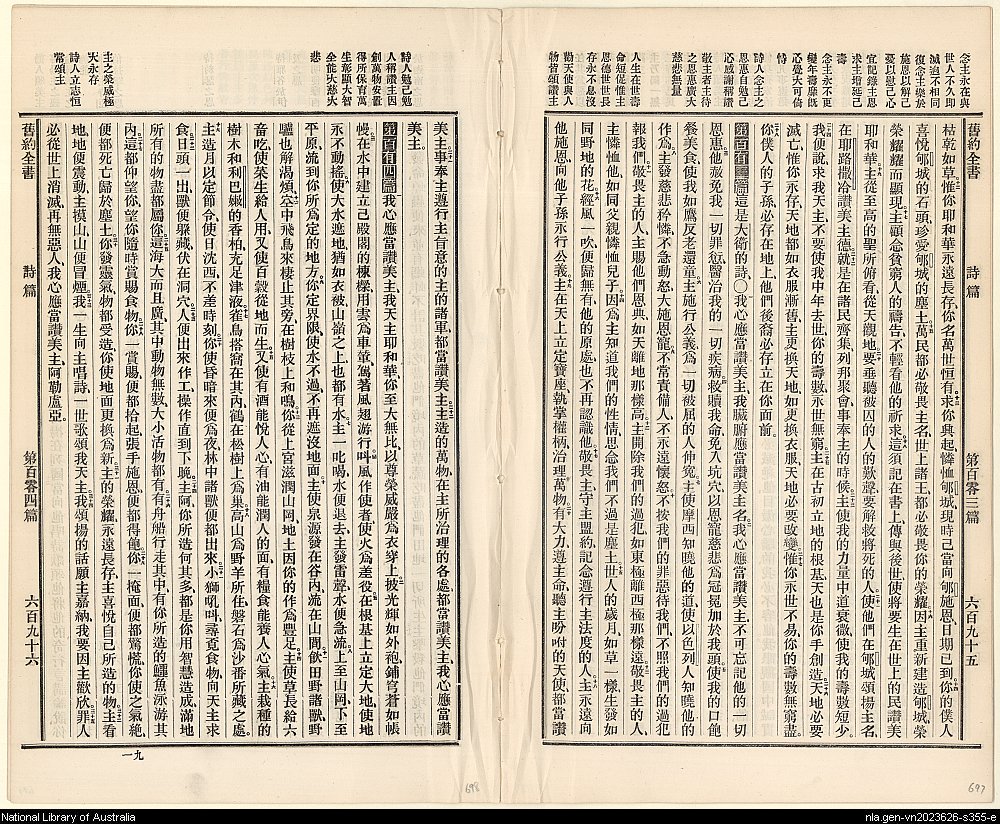 舊約全書 詩篇 第百零三篇 六百九十五
念主永在與
世人不久即
滅迥不相同
復念主樂於
施恩以解己
憂以慰己心
宜記錄主恩
求主增延己
壽
念主永不更
變年壽靡既
心覺大可倚
恃
詩人念主之
恩惠自勉己
心感謝稱讚
敬主者主待
之恩惠廣大
慈悲無量
人生在世壽
命短促惟主
恩德世世長
存永不息沒
勸天使與人
物皆頌讚主
枯乾如草惟你耶和華永遠長存你名萬世恒有求你興起憐恤郇城現時己當向郇施恩日期已到你的僕人
喜悅郇城的石頭珍愛郇城的塵土萬民都必敬畏主名世上諸王都必敬畏你的榮耀因主重新建造郇城榮
榮耀耀而顯現主顧念貧窮人的禱告不輕看他的祈求這須記在書上傳與後世使將要生在世上的民讚美
耶和華主從至高的聖所俯看從天觀地要垂聽被囚的人的歎聲要解救將死的人使他們在郇城頌揚主名
在耶路撒冷讚美主德就是在諸民齊集列邦聚會事奉主的時候主使我的力量中道衰微使我的壽數短少
我便說求我天主不要使我中年去世你的壽數永世無窮主在古初立地的根基天也是你手創造天地必要
滅亡惟你永存天地都如衣服漸舊主更換天地如更換衣服天地必要改變惟你永世不易你的壽數無窮盡
你僕人的子孫必存在地上他們後裔必存立在你面前
第百有三篇這是大衛的詩〇我心應當讚美主我臟腑應當讚美主名我心應當讚美主不可忘記他的一切
恩惠他赦免我一切罪愆醫治我的一切疾病救贖我命免入坑穴以恩寵慈悲爲冠冕加於我頭使我的口飽
餐美食使我如鷹反老還童主施行公義爲一切被屈的人伸寃主使摩西知曉他的道使以色列人知曉他的
作爲主發慈悲矜憐不急動怒大施恩寵不常責備人不永遠懷怒不按我們的罪惡待我們不照我們的過犯
報我們敬畏主的人主賜他們恩典如天離地那樣高主開除我們的過犯如東極離西極那樣遠敬畏主的人
主憐恤他如同父親憐恤兒子因爲主知道我們的性情思念我們不過是塵土世人的歲月如草一樣生發如
同野地的花經風一吹便歸無有他的原處也不再認識他敬畏主守主盟約記念遵行主法度的人主永遠向
他施恩向他子孫永行公義主在天上立定寶座執掌權柄治理萬物有大力遵主命聽主吩咐的天使都當讚
697
美主事奉主遵行主旨意的主的諸軍都當讚美主主造的萬物在主所治理的各處都當讚美主我心應當讚
美主
第百有四篇我心應當讚美主我天主耶和華你至大無比以尊榮威嚴爲衣穿上披光輝如外袍鋪穹蒼如帳
幔在水中建立己殿閣的棟樑用雲爲車輦駕著風翅游行叫風作使者使火爲差役在根基上立定大地使地
永不動搖使大水遮地猶如衣被山嶺之上也都有水主一叱喝水便退去主發雷聲水便急流上至山岡下至
平原流到你所爲定的地方你定界限使水不過不再遮沒地面主使泉源發在谷內流在山間飲田野諸獸野
驢也解渴煩空中飛鳥來棲止其旁在樹枝上和鳴你從上宮滋潤山岡地土因你的作爲豐足主使草長給六
畜吃使菜生給人用又使百穀從地而生又使有酒能悅人心有油能潤人的面有糧食能養人心氣主栽種的
樹木和利巴嫩的香柏充足津液雀鳥搭窩在其內鶴在松樹上爲巢高山爲野羊所住磐石爲沙番所藏之處
主造月以定節令使日沈西不差時刻你使昏暗來便爲夜林中諸獸便都出來小獅吼叫尋覓食物向天主求
食日頭一出獸便躱藏伏在洞穴人便出來作工操作直到下晚主阿你所造何其多都是你用智慧造成滿地
所有的物盡都屬你這海大而且廣其中動物無數大小活物都有有舟船行走其中有你所造的鱷魚泳游其
內這都仰望你望你隨時賞賜食物你一賞賜便都拾起張手施恩便都得飽你一掩面便都驚慌你使之氣絶
便都死亡歸於塵土你發靈氣物都受造你使地面更換爲新主的榮耀永遠長存主喜悅自己所造的物主看
地地便震動主摸山山便冒煙我一生向主唱詩一世歌頌我天主我頌揚的話願主嘉納我要因主歡欣罪人
必從世上消滅再無惡人我心應當讚美主阿勒盧亞
詩人勉己勉
人稱讚主因
創萬物安置
得所保育萬
生彰顯大智
全能大慈大
悲
主之榮威極
大永存
詩人立志恒
常頌主
舊約全書 詩篇 第百零四篇 六百九十六
一九
698
National Library of Australia
nla.gen-vn2023626-s355-e